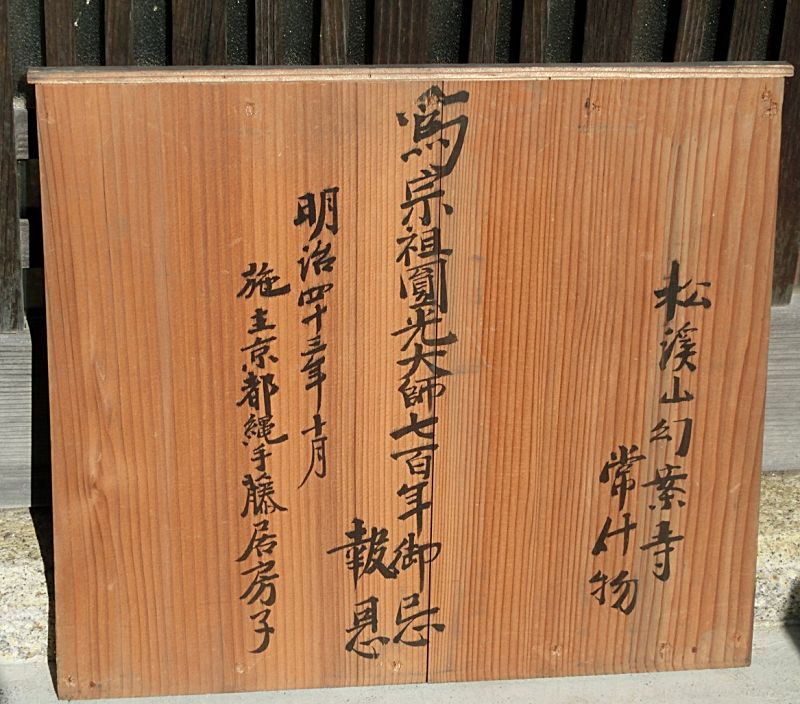 松溪山幻業寺
常什物
為宗祖圓光大師七百年御忌
報恩
明治四十三年十月
施主京都縄手藤居房子